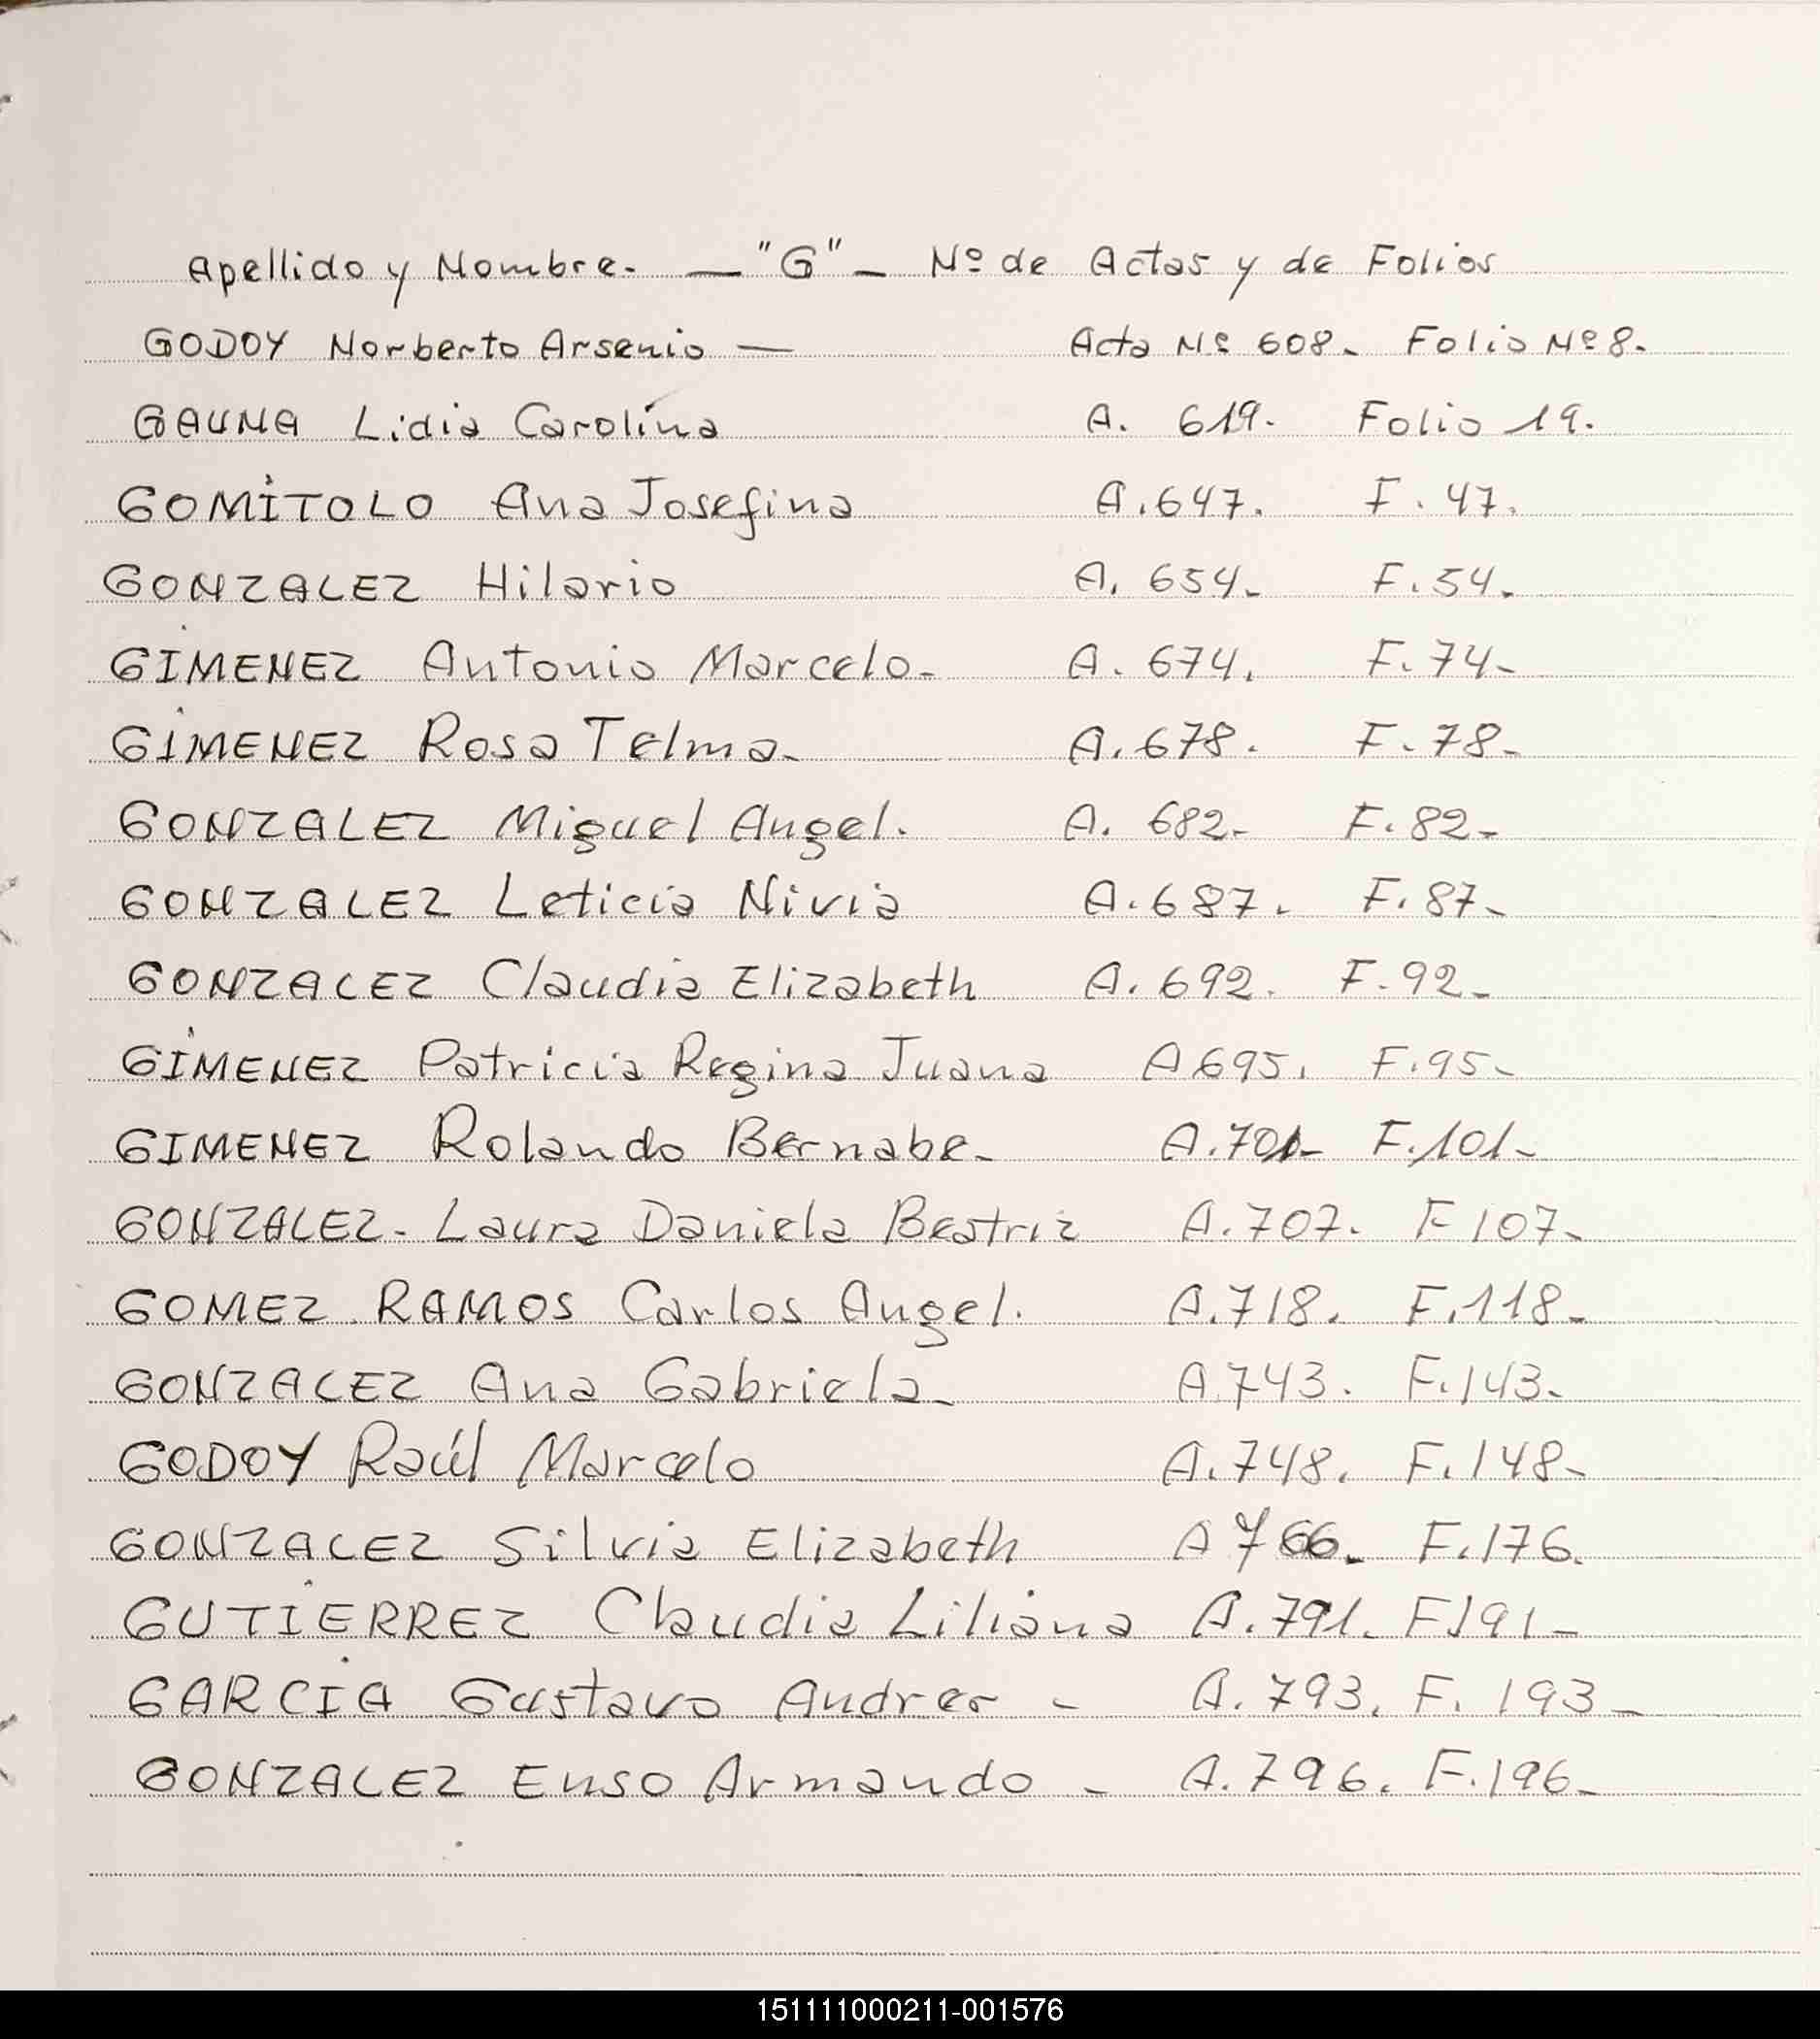 Apellido y Nombre. — "G" — Nº de Actas y de Folios
GODOY Norberto Arsenio — Acta Nº 608. Folio Nº 8.
GAUNA Lidia Carolina A. 619. Folio 19.
GOMITOLO Ana Josefina A. 647. F. 47.
GONZALEZ Hilario A. 654. F. 54.
GIMENEZ Antonio Marcelo. A. 674. F. 74-
GIMENEZ Rosa Telma. A. 678. F. 78-
GONZALEZ Miguel Angel. A. 682- F. 82-
GONZALEZ Leticia Nivia A. 687. F. 87-
GONZALEZ Claudia Elizabeth A. 692. F. 92-
GIMENEZ Patricia Regina Juana A 695. F. 95-
GIMENEZ Rolando Bernabe. A. 701- F. 101-
GONZALEZ- Laura Daniela Beatriz A. 707. F 107-
GOMEZ RAMOS Carlos Angel. A. 718. F. 118-
GONZALEZ Ana Gabriela- A 743. F. 143-
GODOY Raúl Marcelo A. 748. F. 148-
GONZALEZ Silvia Elizabeth A 766. F. 176.
GUTIERREZ Claudia Liliana A. 791. F 191-
GARCIA Gustavo Andres - A. 793. F. 193-
GONZALEZ Enso Armando - A. 796. F. 196-
151111000211-001576